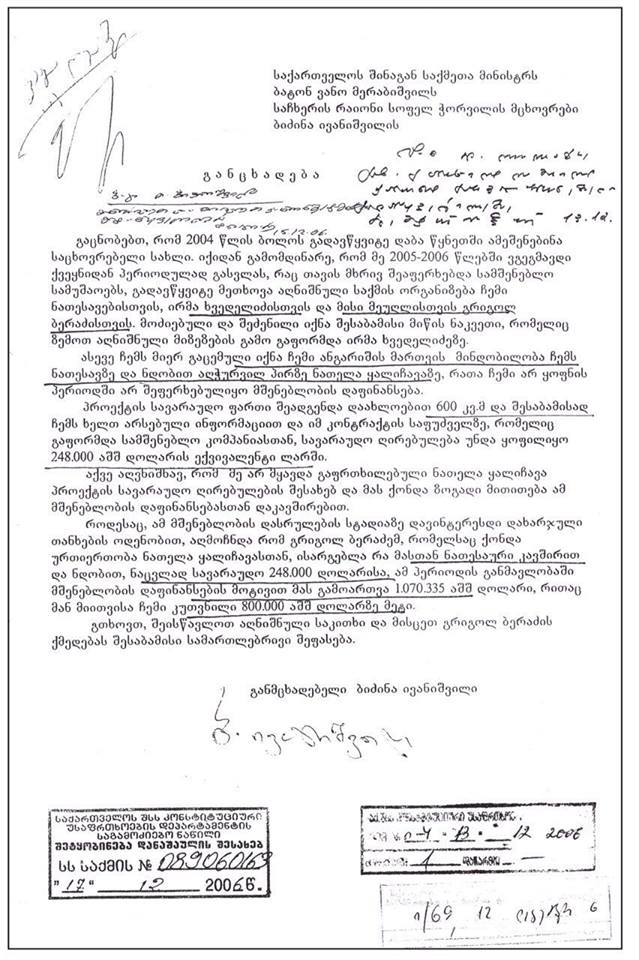 საქართველოს შინაგან საქმეთა მინისტრს
ბატონ ვანო მერაბიშვილს
საჩხერის რაიონი სოფელ ჭორვილის მცხოვრები
ბიძინა ივანიშვილის
განცხადება
15.12.06
13.12.
გაცნობებთ, რომ 2004 წლის ბოლოს გადავწყვიტე დაბა წყნეთში ამეშენებინა
საცხოვრებელი სახლი. იქიდან გამომდინარე, რომ მე 2005-2006 წლებში ვგეგმავდი
ქვეყნიდან პერიოდულად გასვლას, რაც თავის მხრივ შეაფერხებდა სამშენებლო
სამუშაოებს, გადავწყვიტე მეთხოვა აღნიშნული საქმის ორგანიზება ჩემი
ნათესავებისთვის, ირმა ხვედელიძისთვის და მისი მეუღლისთვის გრიგოლ
ბერაძისთვის. მოძიებული და შეძენილი იქნა შესაბამისი მიწის ნაკვეთი, რომელიც
ზემოთ აღნიშნული მიზეზების გამო გაფორმდა ირმა ხვედელიძეზე.
ასევე ჩემს მიერ გაცემული იქნა ჩემი ანგარიშის მართვის მინდობილობა ჩემს
ნათესავზე და ნდობით აღჭურვილ პირზე ნათელა ყალიჩავაზე, რათა ჩემი არ ყოფნის
პერიოდში არ შეფერხებულიყო მშენებლობის დაფინანსება.
პროექტის სავარაუდო ფართი შეადგენდა დაახლოებით 600 კვ.მ და შესაბამისად
ჩემს ხელთ არსებული ინფორმაციით და იმ კონტრაქტის საფუძველზე, რომელიც
გაფორმდა სამშენებლო კომპანიასთან, სავარაუდო ღირებულება უნდა ყოფილიყო
248.000 აშშ დოლარის ექვივალენტი ლარში.
აქვე აღვნიშნავ, რომ მე არ მყავდა გაფრთხილებული ნათელა ყალიჩავა
პროექტის სავარაუდო ღირებულების შესახებ და მას ქონდა ზოგადი მითითება ამ
მშენებლობის დაფინანსებასთან დაკავშირებით.
როდესაც, ამ მშენებლობის დასრულების სტადიაზე დავინტერესდი დახარჯული
თანხების ოდენობით, აღმოჩნდა რომ გრიგოლ ბერაძემ, რომელსაც ქონდა
ურთიერთობა ნათელა ყალიჩავასთან, ისარგებლა რა მასთან ნათესაური კავშირით
და ნდობით, ნაცვლად სავარაუდო 248.000 დოლარისა, ამ პერიოდის განმავლობაში
მშენებლობის დაფინანსების მოტივით მას გამოართვა 1.070.335 აშშ დოლარი, რითაც
მან მიითვისა ჩემი კუთვნილი 800.000 აშშ დოლარზე მეტი.
გთხოვთ, შეისწავლოთ აღნიშნული საკითხი და მისცეთ გრიგოლ ბერაძის
ქმედებას შესაბამისი სამართლებრივი შეფასება.
განმცხადებელი ბიძინა ივანიშვილი
ბ. ივანიშვილი
საქართველოს შსს კონსტიტუციური
უსაფრთხოების დეპარტამენტის
საგამოძიებო ნაწილი
შეტყობინება დანაშაულის შესახებ
სს საქმის № 089060169
"17" 12 2006წ.
12 2006
1
1/69 12 6